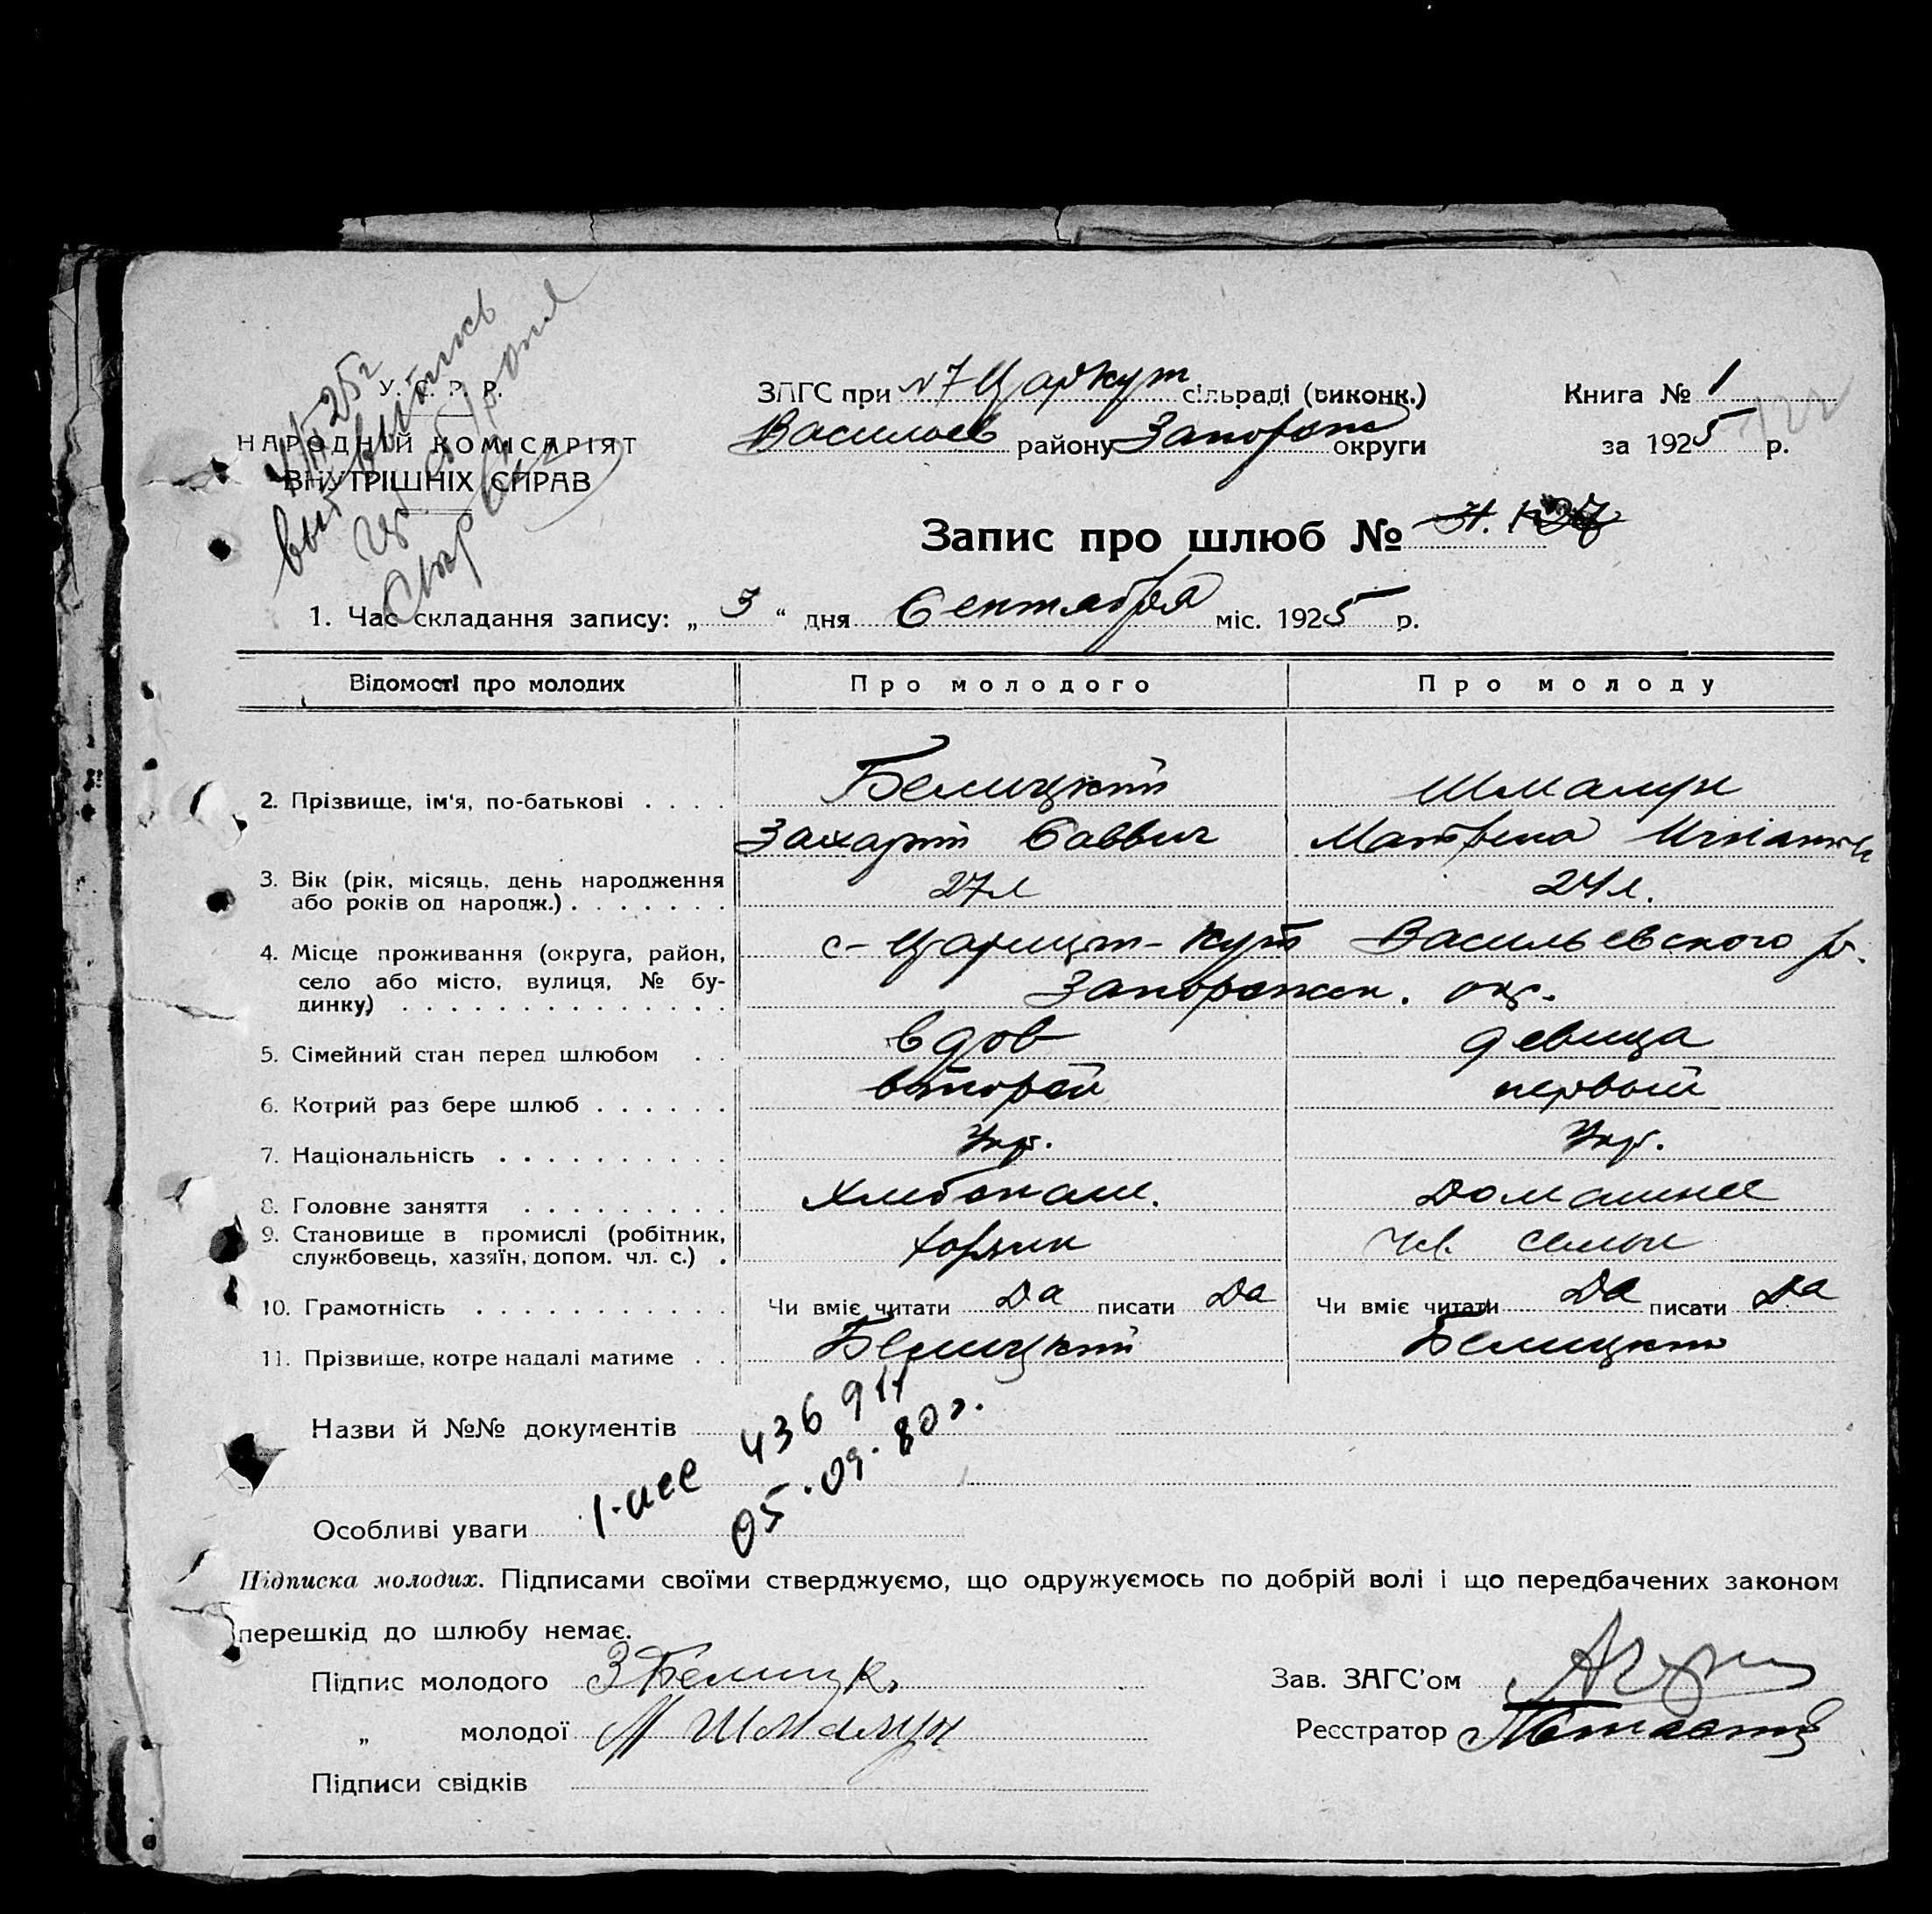 У. С. Р. Р.
НАРОДНІЙ КОМІСАРІЯТ
ВНУТРІШНІХ СПРАВ
ЗАГС при №7 Царкут сільраді (виконк.)
Васильев району Запорож округи
Книга № 1
за 1925 р.
122
Запис про шлюб №
1. Час складання запису: „ 3 “ дня Сентября міс. 1925 р.
Відомості про молодих Про молодого Про молоду
2. Прізвище, ім'я, по-батькові . . . . Белицкий Шмалун
Захарий Саввич Матрена
3. Вік (рік, місяць, день народження 27л 24л.
або років од народж.) . . . . . . .
4. Місце проживання (округа, район, с- Царицин-Кут Васильевского р.
село або місто, вулиця, № бу- Запорожск. окр.
динку) . . . . . . . . . . . . . .
5. Сімейний стан перед шлюбом . . вдов девица
6. Котрий раз бере шлюб . . . . . . второй первый
7. Національність . . . . . . . . . . Укр. Укр.
8. Головне заняття . . . . . . . . . Хлебопаш. Домашнее
9. Становище в промислі (робітник, чл. семьи
службовець, хазяїн, допом. чл. с.) .
10. Грамотність . . . . . . . . . . . Чи вміє читати Да писати Да Чи вміє читати Да писати Да
11. Прізвище, котре надалі матиме . . Белицкий Белицкий
Назви й №№ документів 436911
05.09.80г.
Особливі уваги
Підписка молодих. Підписами своїми стверджуємо, що одружуємось по добрій волі і що передбачених законом
перешкід до шлюбу немає.
Підпис молодого З Белицк
Зав. ЗАГС'ом
„ молодої М Шмалун
Реєстратор
Підписи свідків